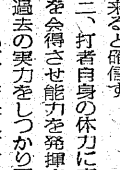 来ると確信す
二、打者自身の体力に
を会得させ能力を発揮
過去の実力をしつかり